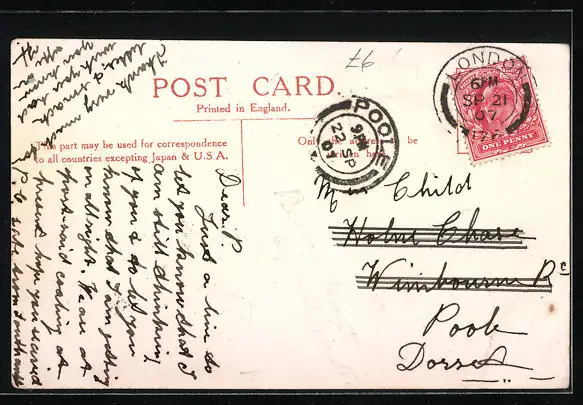 £6
POST CARD.
Printed in England.
This part may be used for correspondence
to all countries excepting Japan & U.S.A.
Only the address be
written here
LONDON
6PM
SP 21
07
ONE PENNY
POOLE
9PM
SP
22
07
Mr Child
Holne Chase
Wimbourne Rd
Poole
Dorset
Dear P.
Just a line to
let you know that I
am still thinking
of you & to let you
know that I am getting
on allright. We are at
present coaling at
hope you received
P.C. sent from Southampt
Thank very much for
you